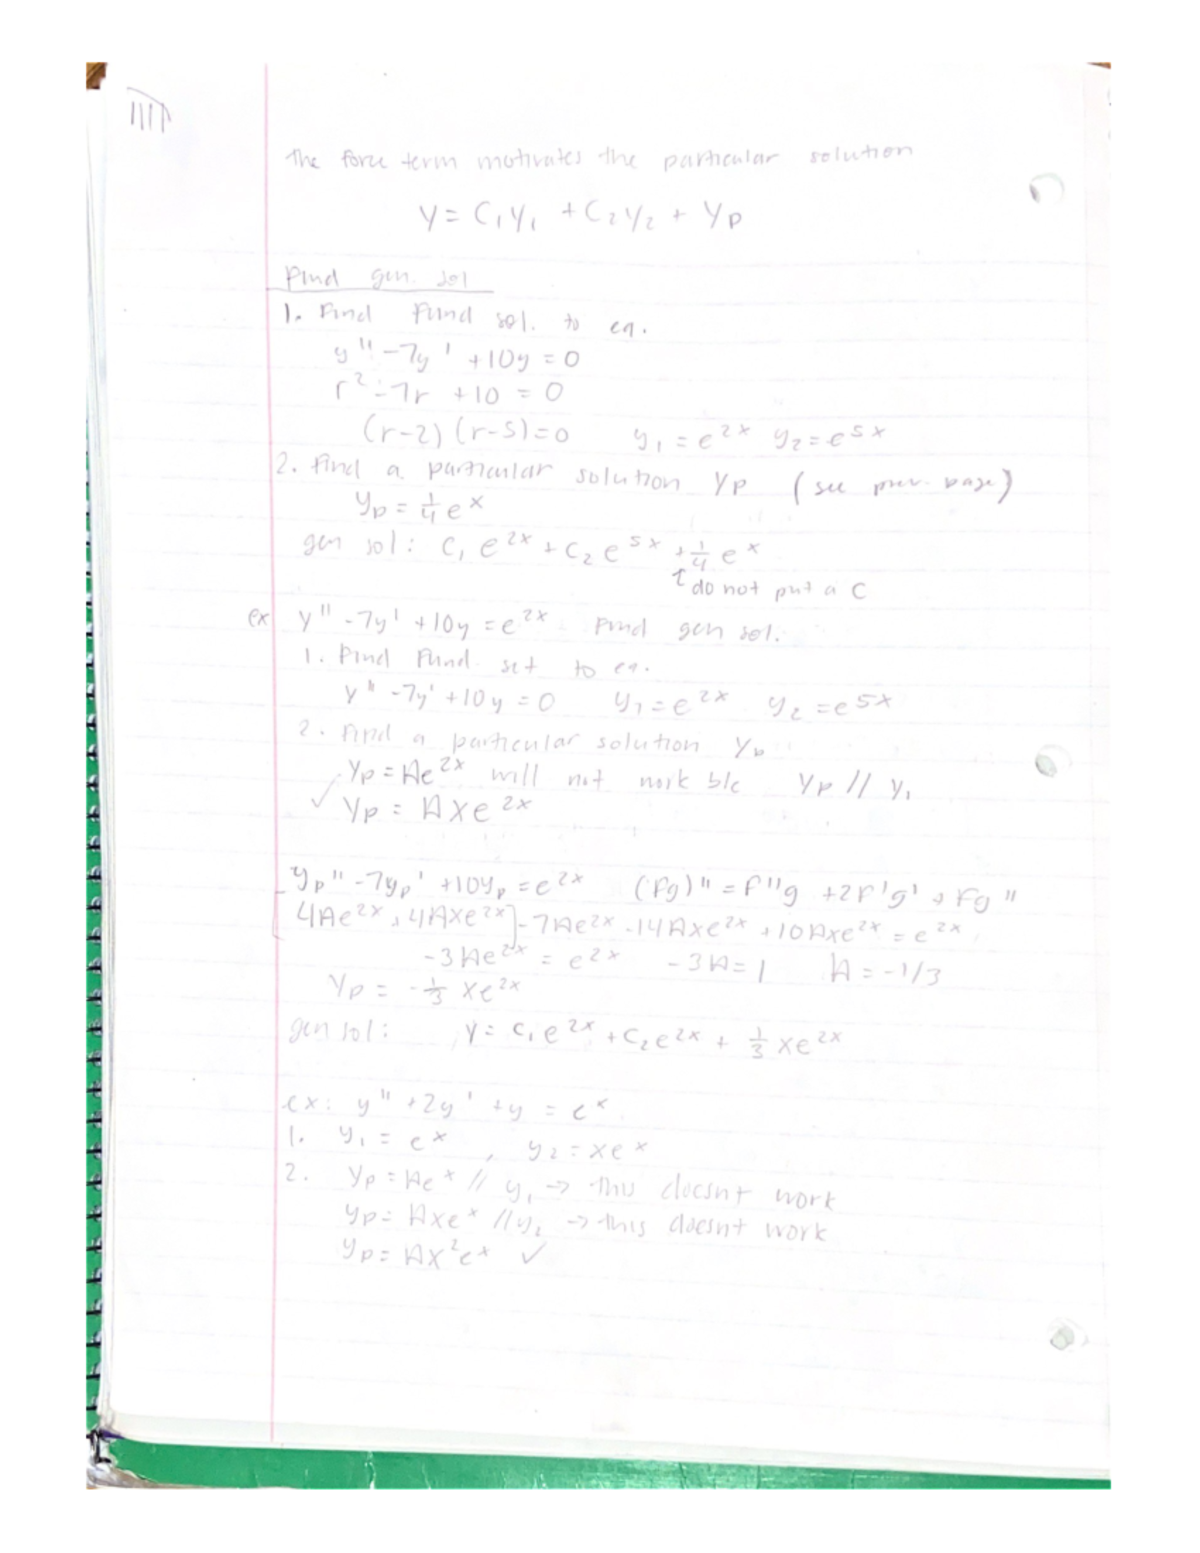 The force term motivates the particular solution
y = C₁y₁ + C₂y₂ + yp
Find gen. sol
1. Find Fund sol. to eq.
y'' - 7y' + 10y = 0
r² - 7r + 10 = 0
(r-2)(r-5)=0 y₁ = e^2x y₂ = e^5x
2. Find a particular solution yp (see prev. page)
yp = 1/4 e^x
gen sol: C₁ e^2x + C₂ e^5x + 1/4 e^x
↑ do not put a C
ex y'' - 7y' + 10y = e^2x Find gen sol.
1. Find Fund. set to eq.
y'' - 7y' + 10y = 0 y₁ = e^2x y₂ = e^5x
2. Find a particular solution yp
yp = Ae^2x will not work b/c yp // y₁
✓ yp = Axe^2x
yp'' - 7yp' + 10yp = e^2x (fg)'' = f''g + 2f'g' + fg''
[4Ae^2x + 4Axe^2x] - 7Ae^2x - 14Axe^2x + 10Axe^2x = e^2x
-3Ae^2x = e^2x -3A = 1 A = -1/3
yp = -1/3 xe^2x
gen sol: y = C₁e^2x + C₂e^2x + 1/3 xe^2x
ex: y'' + 2y' + y = e^x
1. y₁ = e^x , y₂ = xe^x
2. yp = Ae^x // y₁ → this doesnt work
yp = Axe^x // y₂ → this doesnt work
yp = Ax²e^x ✓